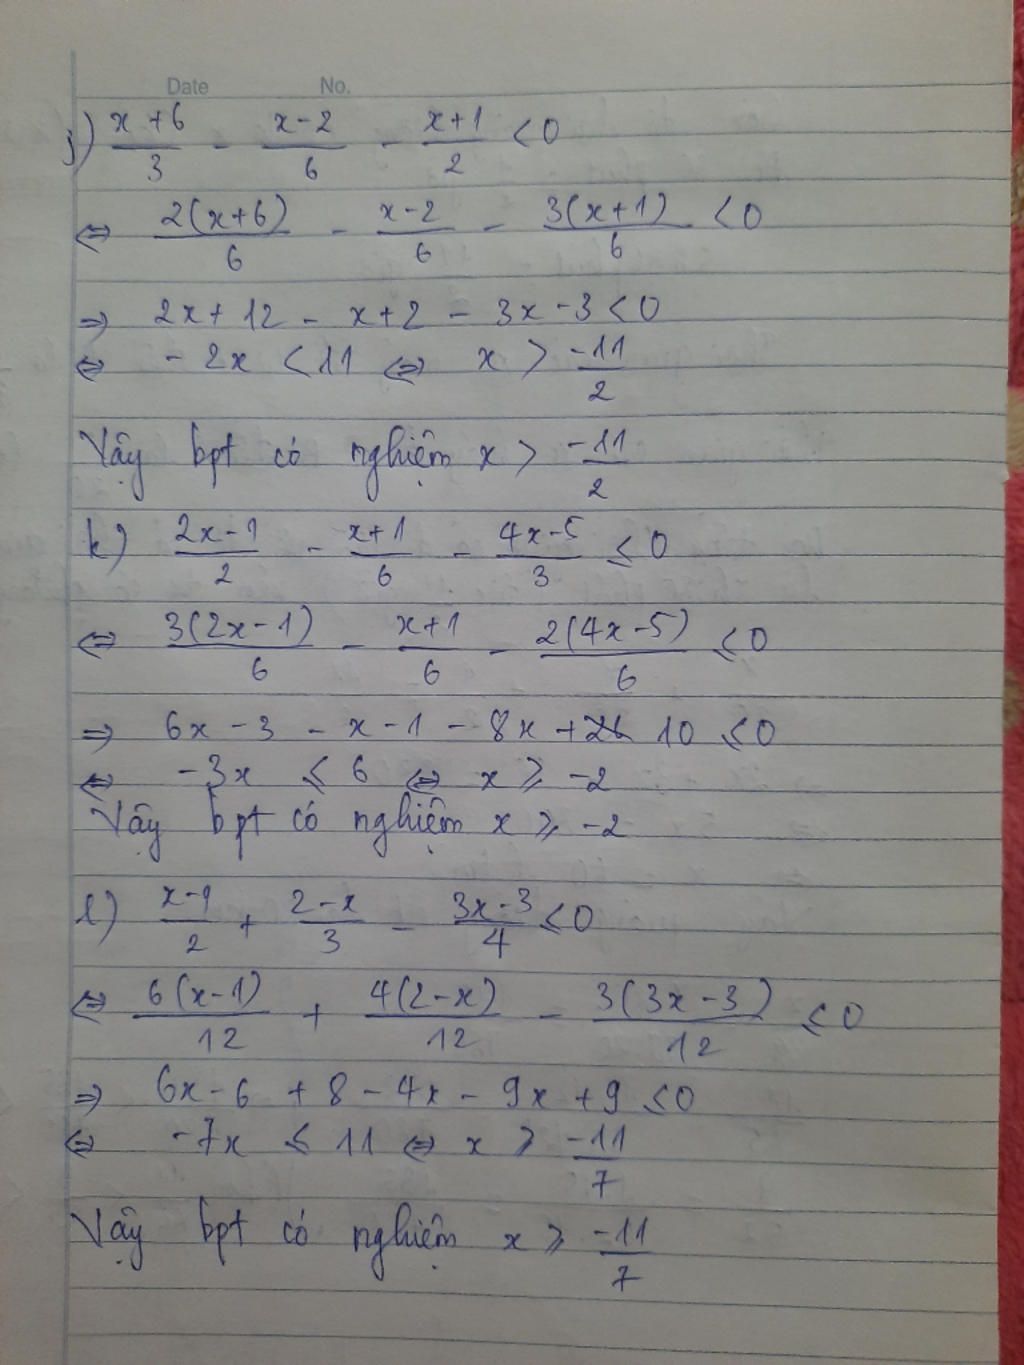 Date No.
j) (x+6)/3 - (x-2)/6 - (x+1)/2 < 0
⇔ 2(x+6)/6 - (x-2)/6 - 3(x+1)/6 < 0
⇒ 2x + 12 - x + 2 - 3x - 3 < 0
⇔ - 2x < 11 ⇔ x > -11/2
Vậy bpt có nghiệm x > -11/2
k) (2x-1)/2 - (x+1)/6 - (4x-5)/3 ≤ 0
⇔ 3(2x-1)/6 - (x+1)/6 - 2(4x-5)/6 ≤ 0
⇒ 6x - 3 - x - 1 - 8x + 10 ≤ 0
⇔ -3x ≤ 6 ⇔ x ≥ -2
Vậy bpt có nghiệm x ≥ -2
l) (x-1)/2 + (2-x)/3 - (3x-3)/4 ≤ 0
⇔ 6(x-1)/12 + 4(2-x)/12 - 3(3x-3)/12 ≤ 0
⇒ 6x - 6 + 8 - 4x - 9x + 9 ≤ 0
⇔ -7x ≤ 11 ⇔ x ≥ -11/7
Vậy bpt có nghiệm x ≥ -11/7